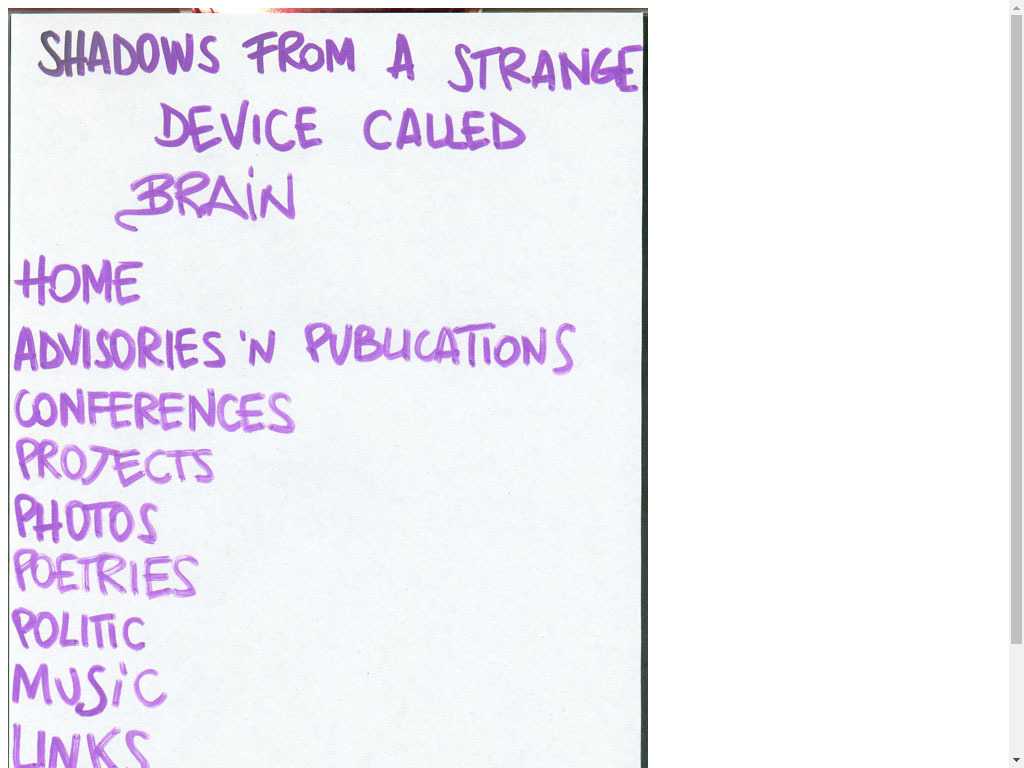 SHADOWS FROM A STRANGE
DEVICE CALLED
BRAIN
HOME
ADVISORIES 'N PUBLICATIONS
CONFERENCES
PROJECTS
PHOTOS
POETRIES
POLITIC
MUSIC
LINKS